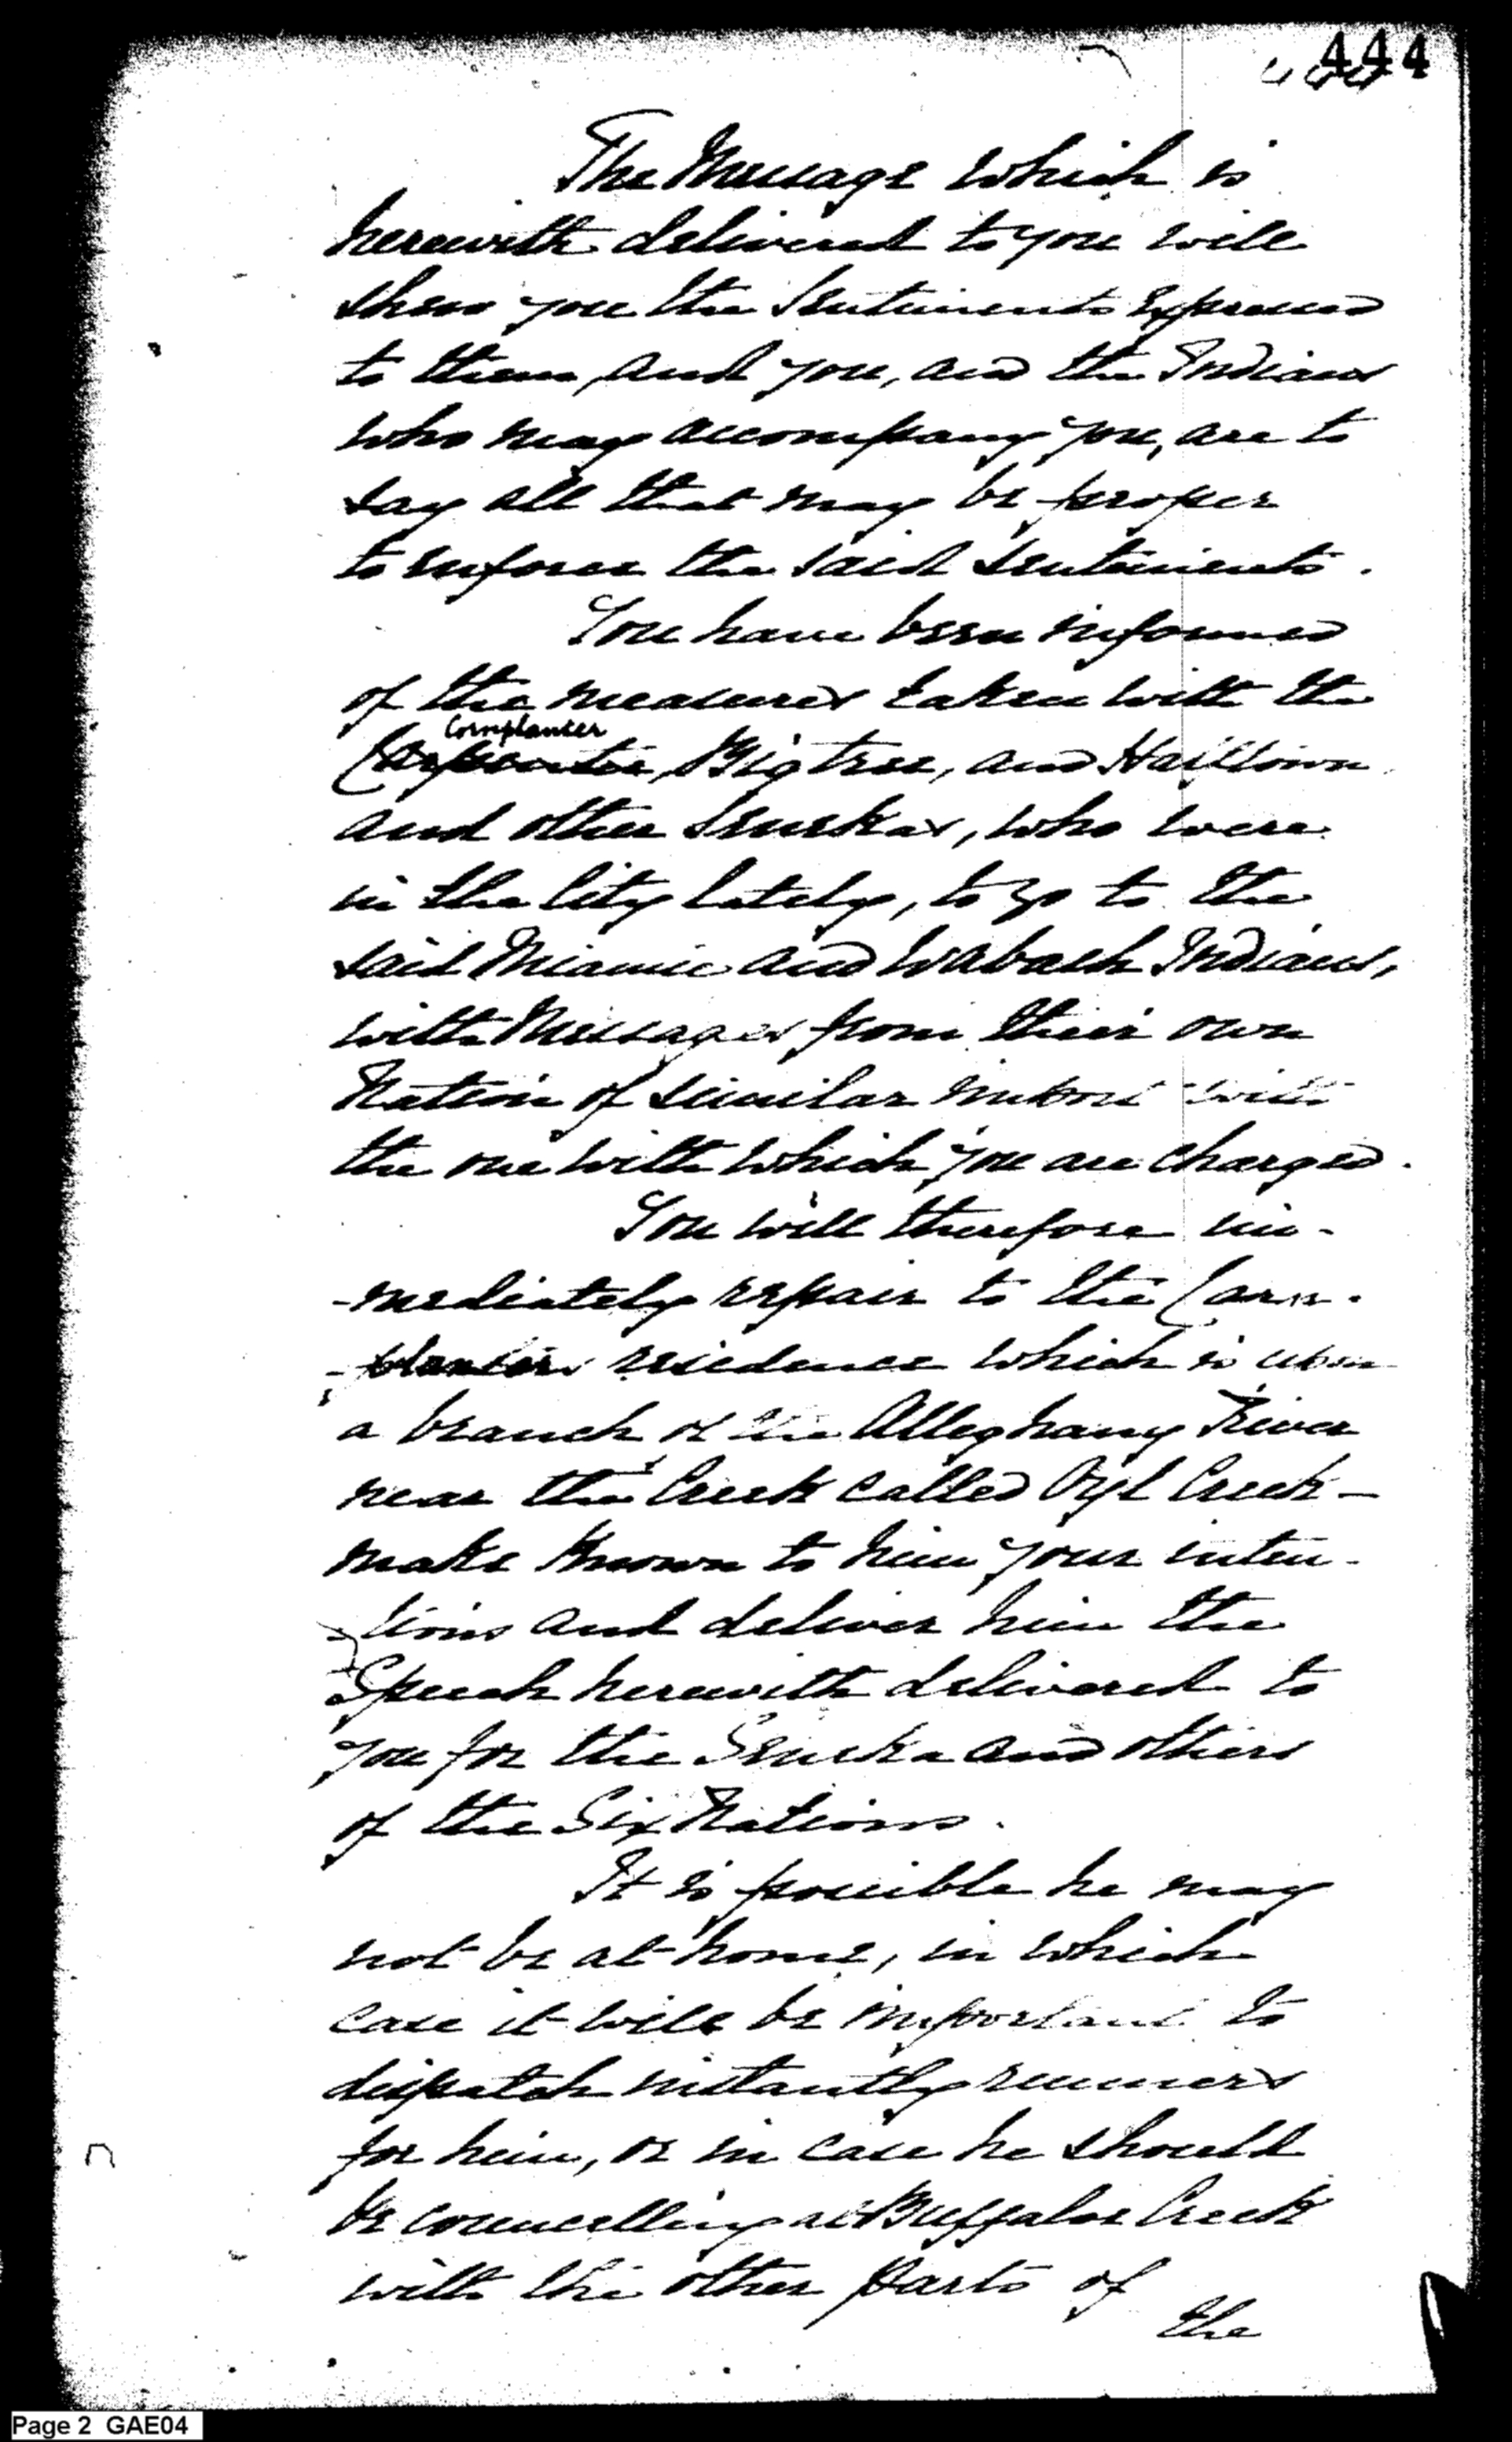 444
The Message which is
herewith delivered to you will
shew you the Sentiments expressed
to them, and you, and the Indians
who may accompany you, are to
say all that may be proper
to enforce the said Sentiments.
You have been informed
of the measures taken with the
Cornplanter
Carpenter, Big tree, and Halftown
and other Senekas, who were
in the City lately, to go to the
said Miami and Wabash Indians,
with Messages from their own
Nation of similar import with
the one with which you are charged.
You will therefore im-
-mediately repair to the Corn-
-planters residence which is upon
a branch of the Alleghany River
near the Creek called Oyl Creek -
make known to him your inten-
-tions and deliver him the
Speech herewith delivered to
you for the Seneka and others
of the Six Nations.
It is possible he may
not be at home, in which
case it will be important to
dispatch instantly runners
for him, or in case he should
be councelling at Buffaloe Creek
with the other parts of
the
Page 2 GAE04